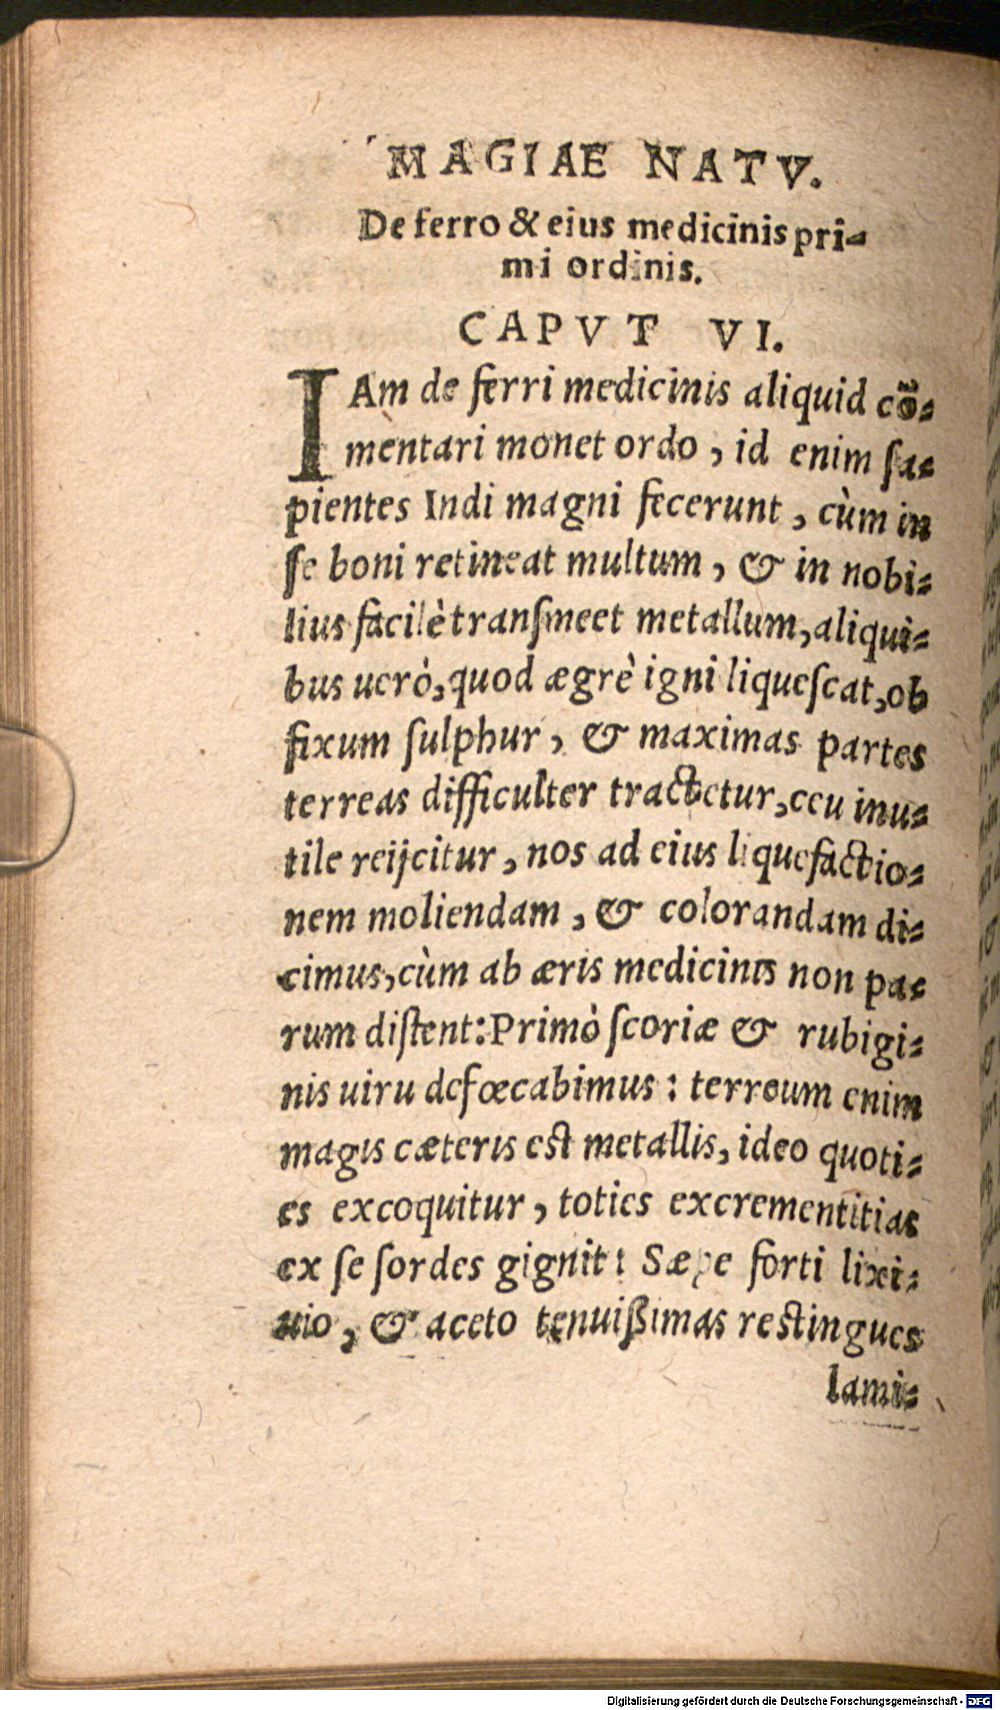 MAGIAE NATV.
De ferro & eius medicinis pri-
mi ordinis.
CAPVT VI.
IAm de ferri medicinis aliquid cō-
mentari monet ordo, id enim ſa-
pientes Indi magni fecerunt, cùm in
ſe boni retineat multum, & in nobi-
lius facilè tranſmeet metallum, aliqui-
bus uerò, quod ægrè igni liqueſcat, ob
fixum ſulphur, & maximas partes
terreas difficulter tractetur, ceu inu-
tile reijcitur, nos ad eius liquefactio-
nem moliendam, & colorandam di-
cimus, cùm ab æris medicinis non pa-
rum diſtent: Primò ſcoriæ & rubigi-
nis uiru defœcabimus: terreum enim
magis cæteris est metallis, ideo quoti-
es excoquitur, toties excrementitias
ex ſe ſordes gignit: Sæpe forti lixi-
uio, & aceto tenuißimas restingues
lami-
Digitalisierung gefördert durch die Deutsche Forschungsgemeinschaft - DFG